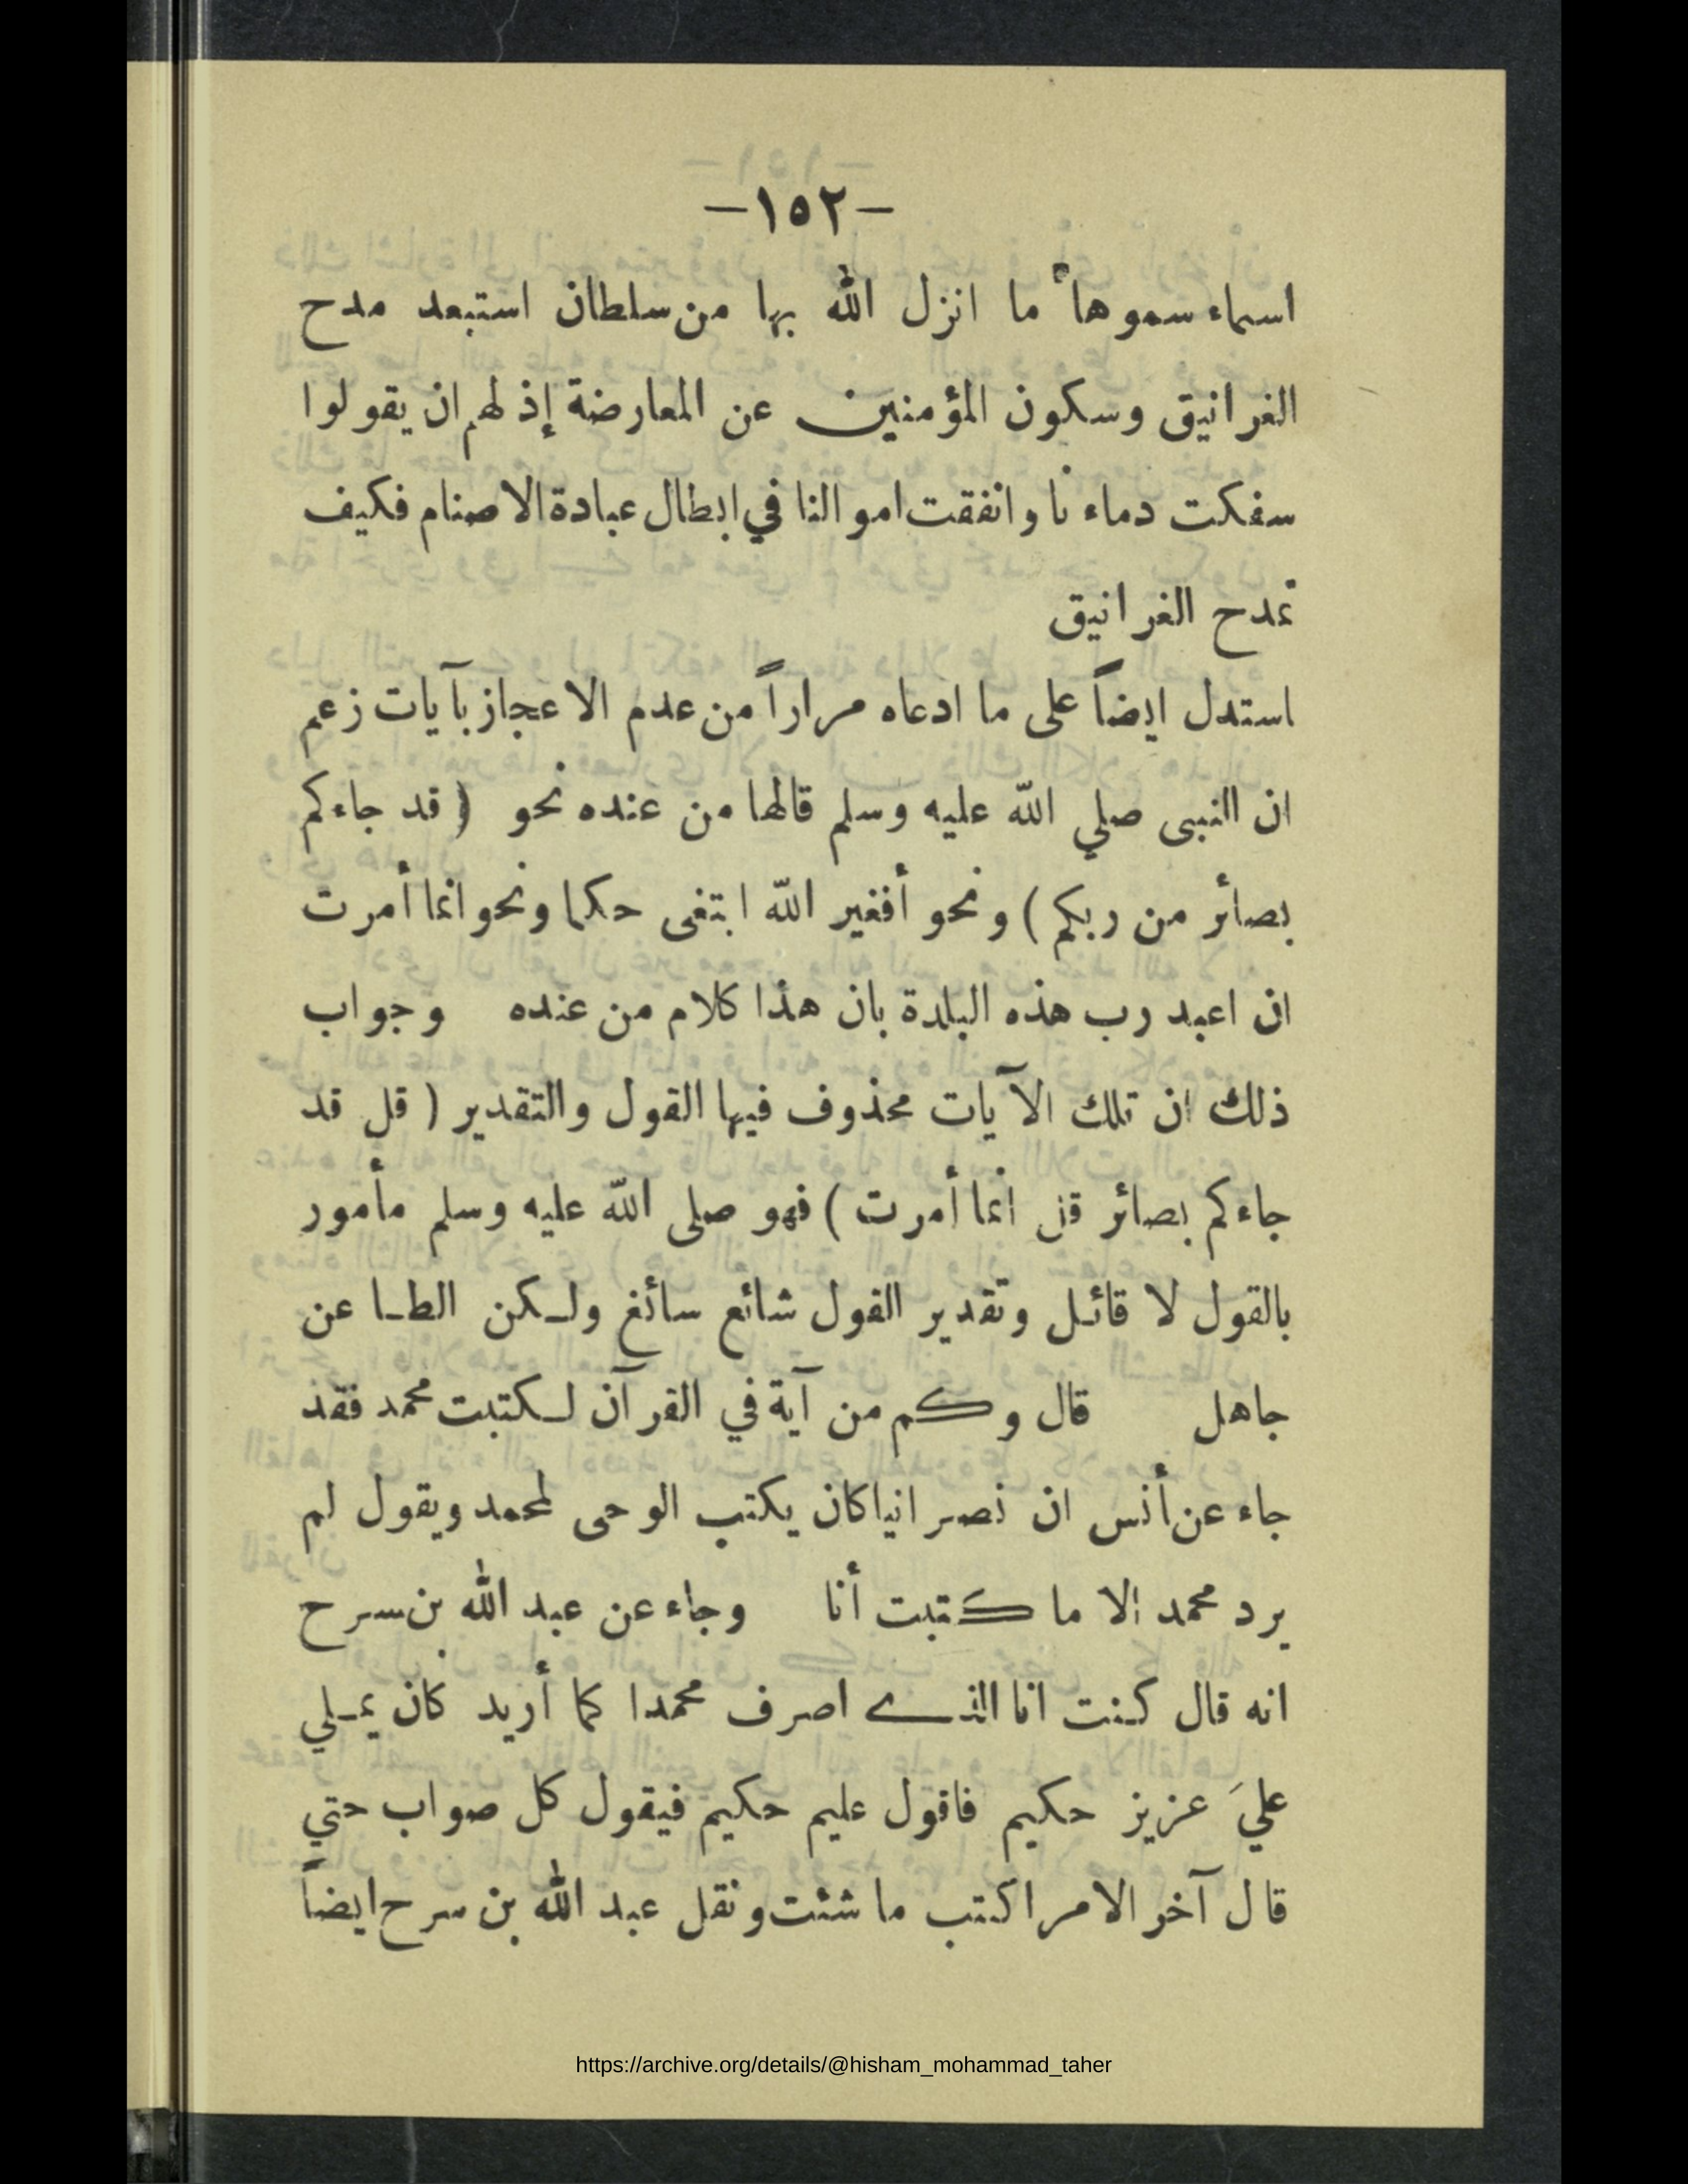 —١٥٢—
اسماء سموها ما انزل الله بها من سلطان استبعد مدح
الغرانيق وسكون المؤمنين عن المعارضة إذ لهم ان يقولوا
سفكت دماءنا وانفقت اموالنا في ابطال عبادة الاصنام فكيف
تمدح الغرانيق
استدل ايضاً على ما ادعاه مراراً من عدم الاعجاز بآيات زعم
ان النبى صلي الله عليه وسلم قالها من عنده نحو ( قد جاءكم
بصائر من ربكم ) ونحو أفغير الله ابتغى حكما ونحو انما أمرت
ان اعبد رب هذه البلدة بان هذا كلام من عنده وجواب
ذلك ان تلك الآيات محذوف فيها القول والتقدير ( قل قد
جاءكم بصائر قل انما أمرت ) فهو صلى الله عليه وسلم مأمور
بالقول لا قائل وتقدير القول شائع سائغ ولكن الطاعن
جاهل قال وكم من آية في القرآن لكتبت محمد فقد
جاء عن أنس ان نصرانيا كان يكتب الوحى لمحمد ويقول لم
يرد محمد الا ما كتبت أنا وجاء عن عبد الله بن سرح
انه قال كنت انا الذي اصرف محمدا كما أريد كان يملي
عليَ عزيز حكيم فاقول عليم حكيم فيقول كل صواب حتي
قال آخر الامر اكتب ما شئت ونقل عبد الله بن سرح ايضاً
https://archive.org/details/@hisham_mohammad_taher